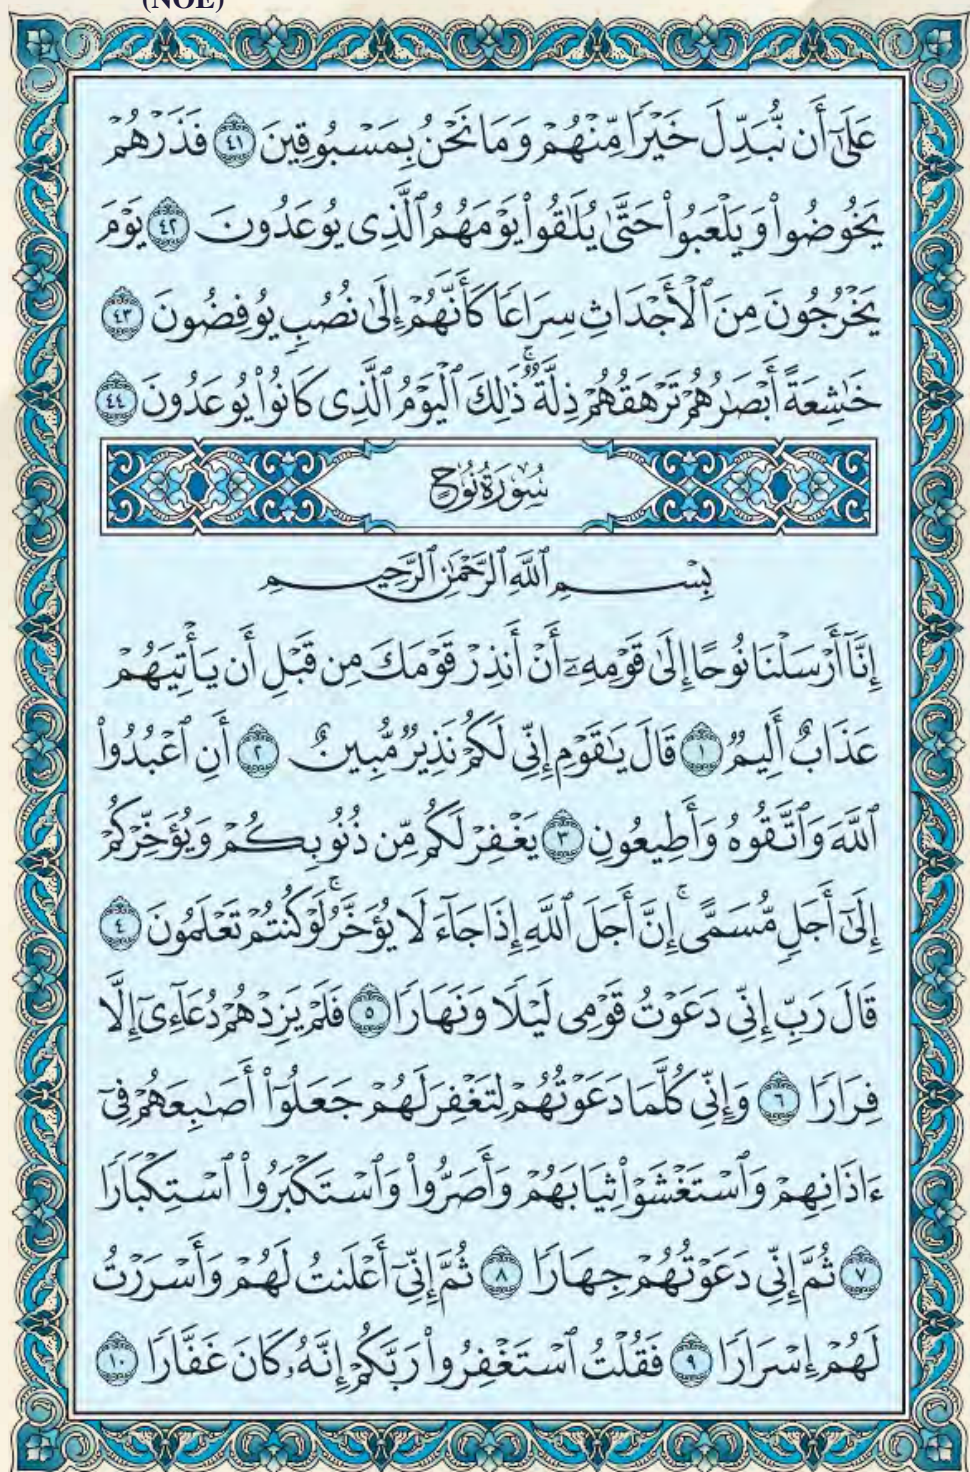 (NOE)
عَلَىٰٓ أَن نُّبَدِّلَ خَيۡرٗا مِّنۡهُمۡ وَمَا نَحۡنُ بِمَسۡبُوقِينَ ٤١ فَذَرۡهُمۡ
يَخُوضُواْ وَيَلۡعَبُواْ حَتَّىٰ يُلَٰقُواْ يَوۡمَهُمُ ٱلَّذِي يُوعَدُونَ ٤٢ يَوۡمَ
يَخۡرُجُونَ مِنَ ٱلۡأَجۡدَاثِ سِرَاعٗا كَأَنَّهُمۡ إِلَىٰ نُصُبٖ يُوفِضُونَ ٤٣
خَٰشِعَةً أَبۡصَٰرُهُمۡ تَرۡهَقُهُمۡ ذِلَّةٞۚ ذَٰلِكَ ٱلۡيَوۡمُ ٱلَّذِي كَانُواْ يُوعَدُونَ ٤٤
سُورَةُ نُوحٍ
بِسۡمِ ٱللَّهِ ٱلرَّحۡمَٰنِ ٱلرَّحِيمِ
إِنَّآ أَرۡسَلۡنَا نُوحًا إِلَىٰ قَوۡمِهِۦٓ أَنۡ أَنذِرۡ قَوۡمَكَ مِن قَبۡلِ أَن يَأۡتِيَهُمۡ
عَذَابٌ أَلِيمٞ ١ قَالَ يَٰقَوۡمِ إِنِّي لَكُمۡ نَذِيرٞ مُّبِينٌ ٢ أَنِ ٱعۡبُدُواْ
ٱللَّهَ وَٱتَّقُوهُ وَأَطِيعُونِ ٣ يَغۡفِرۡ لَكُم مِّن ذُنُوبِكُمۡ وَيُؤَخِّرۡكُمۡ
إِلَىٰٓ أَجَلٖ مُّسَمًّىۚ إِنَّ أَجَلَ ٱللَّهِ إِذَا جَآءَ لَا يُؤَخَّرُۚ لَوۡ كُنتُمۡ تَعۡلَمُونَ ٤
قَالَ رَبِّ إِنِّي دَعَوۡتُ قَوۡمِي لَيۡلٗا وَنَهَارٗا ٥ فَلَمۡ يَزِدۡهُمۡ دُعَآءِيٓ إِلَّا
فِرَارٗا ٦ وَإِنِّي كُلَّمَا دَعَوۡتُهُمۡ لِتَغۡفِرَ لَهُمۡ جَعَلُوٓاْ أَصَٰبِعَهُمۡ فِيٓ
ءَاذَانِهِمۡ وَٱسۡتَغۡشَوۡاْ ثِيَابَهُمۡ وَأَصَرُّواْ وَٱسۡتَكۡبَرُواْ ٱسۡتِكۡبَارٗا
٧ ثُمَّ إِنِّي دَعَوۡتُهُمۡ جِهَارٗا ٨ ثُمَّ إِنِّيٓ أَعۡلَنتُ لَهُمۡ وَأَسۡرَرۡتُ
لَهُمۡ إِسۡرَارٗا ٩ فَقُلۡتُ ٱسۡتَغۡفِرُواْ رَبَّكُمۡ إِنَّهُۥ كَانَ غَفَّارٗا ١٠